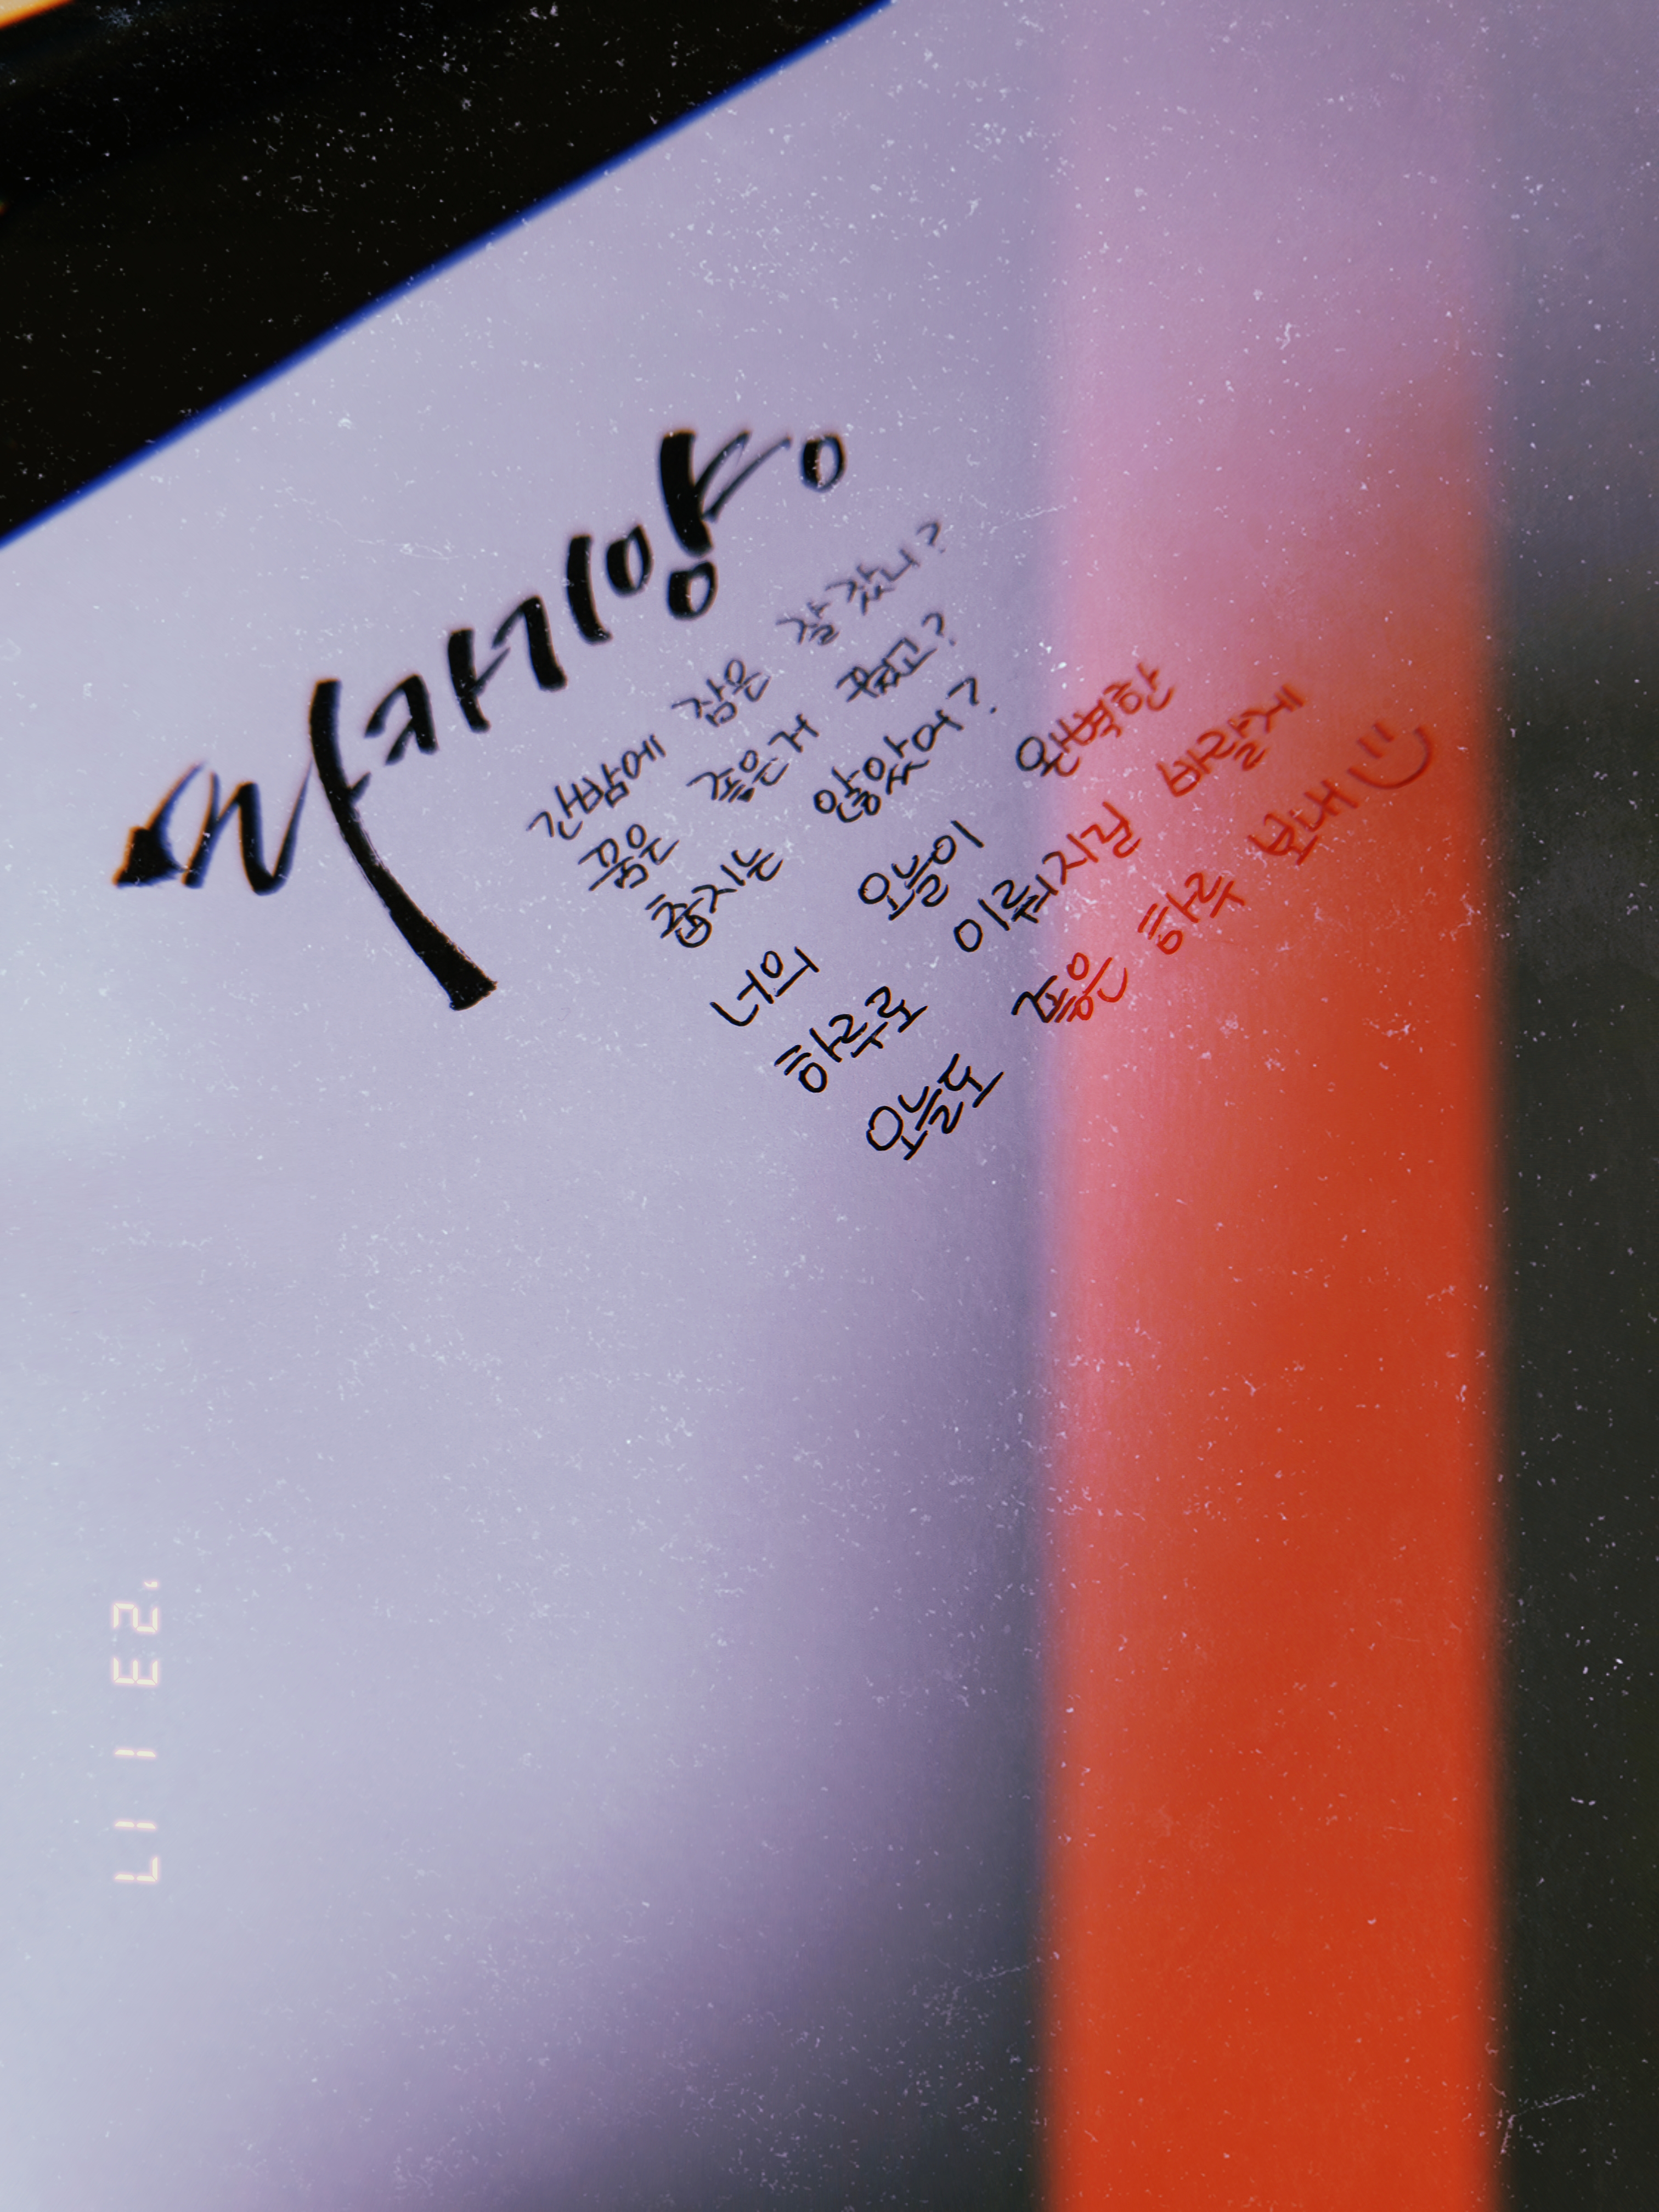 간밤에 잠은 잘 잤니?
꿈은 좋은거 꿨고?
춥지는 않았어?
너의 오늘이 완벽한
하루로 이뤄지길 바랄게
오늘도 좋은 하루 보내 :)
'23 1 17